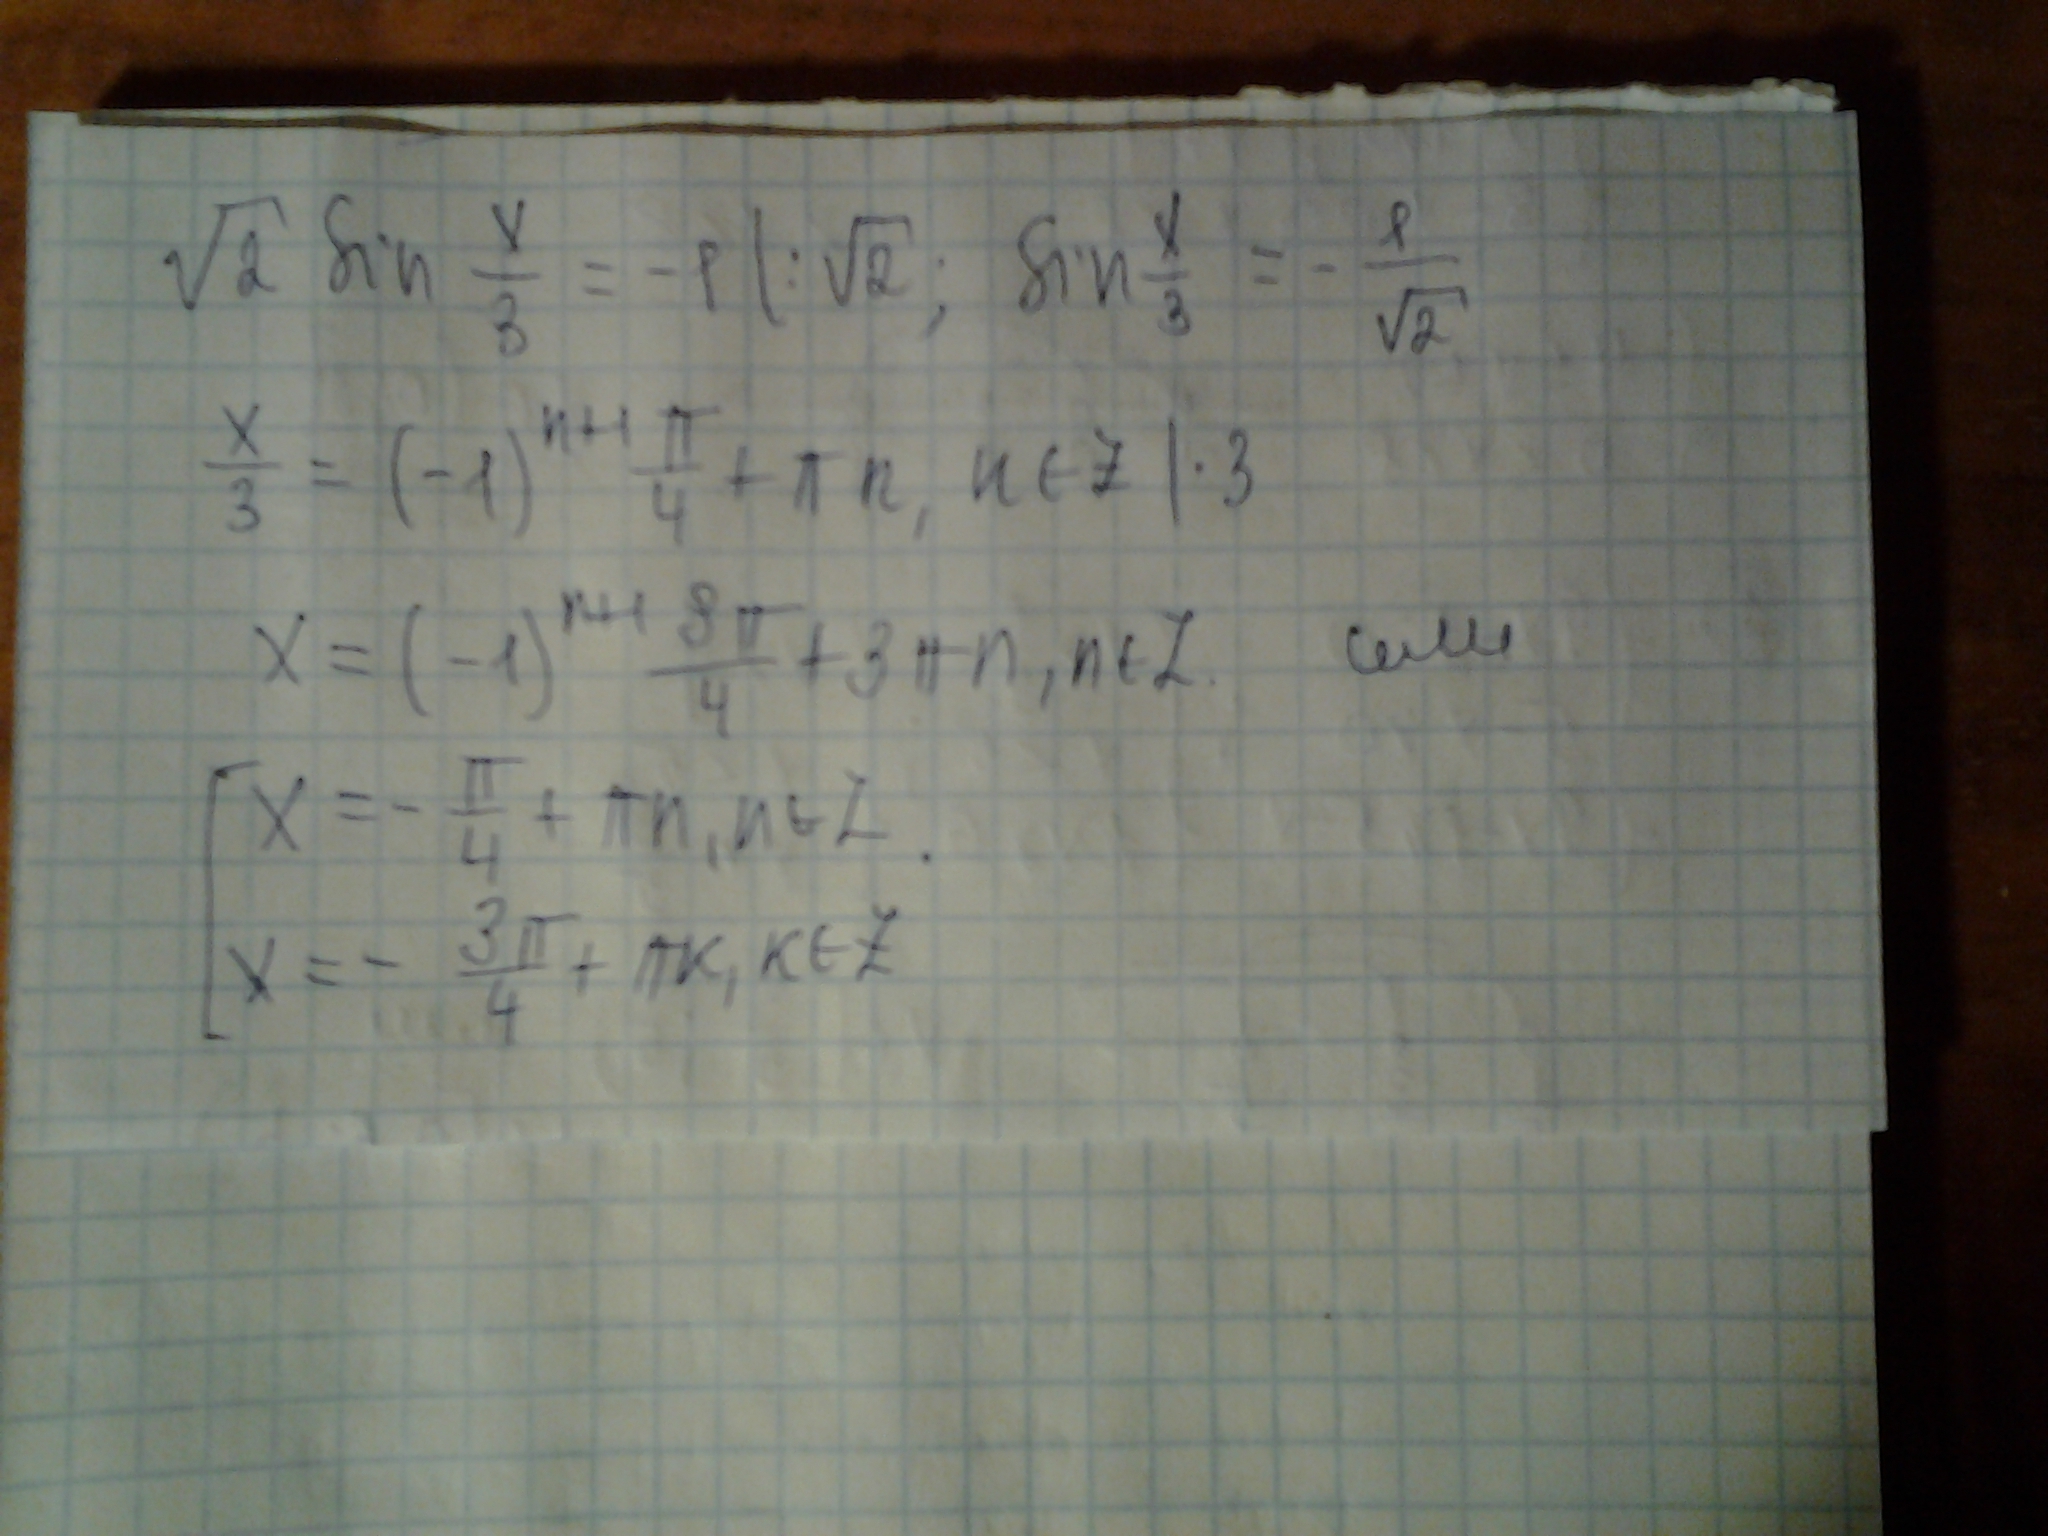 √2 sin x/3 = -1 |:√2; sin x/3 = - 1/√2
x/3 = (-1)^{n+1} π/4 + πn, n∈Z |·3
x = (-1)^{n+1} 3π/4 + 3πn, n∈Z.
[ x = - π/4 + πn, n∈Z.
x = - 3π/4 + πk, k∈Z